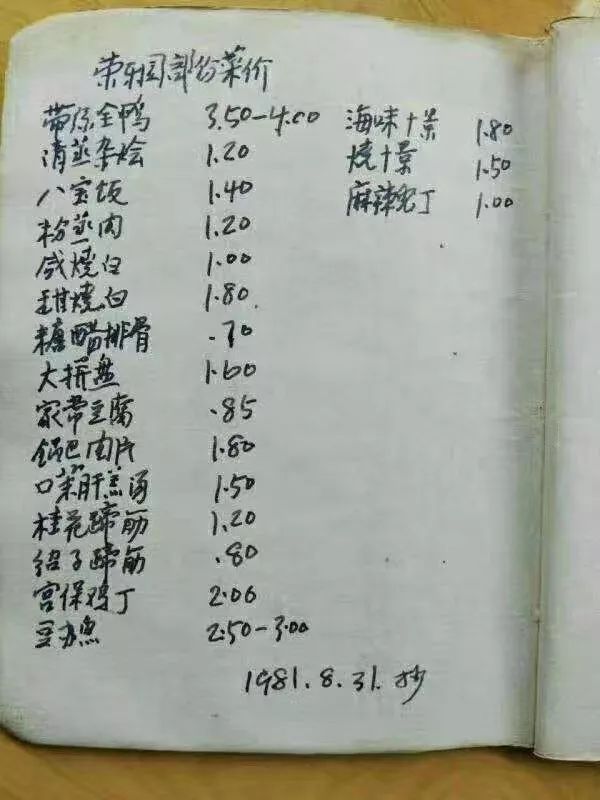 荣乐园部份菜价
带丝全鸭 3.50-4.00
清蒸杂烩 1.20
八宝饭 1.40
粉蒸肉 1.20
咸烧白 1.00
甜烧白 1.80
糖醋排骨 .70
大拼盘 1.60
家常豆腐 .85
锅巴肉片 1.80
口菜肝羔汤 1.50
桂花蹄筋 1.20
绍子蹄筋 .80
宫保鸡丁 2.00
豆办鱼 2.50-3.00
海味十景 1.80
烧十景 1.50
麻辣兔丁 1.00
1981.8.31.抄